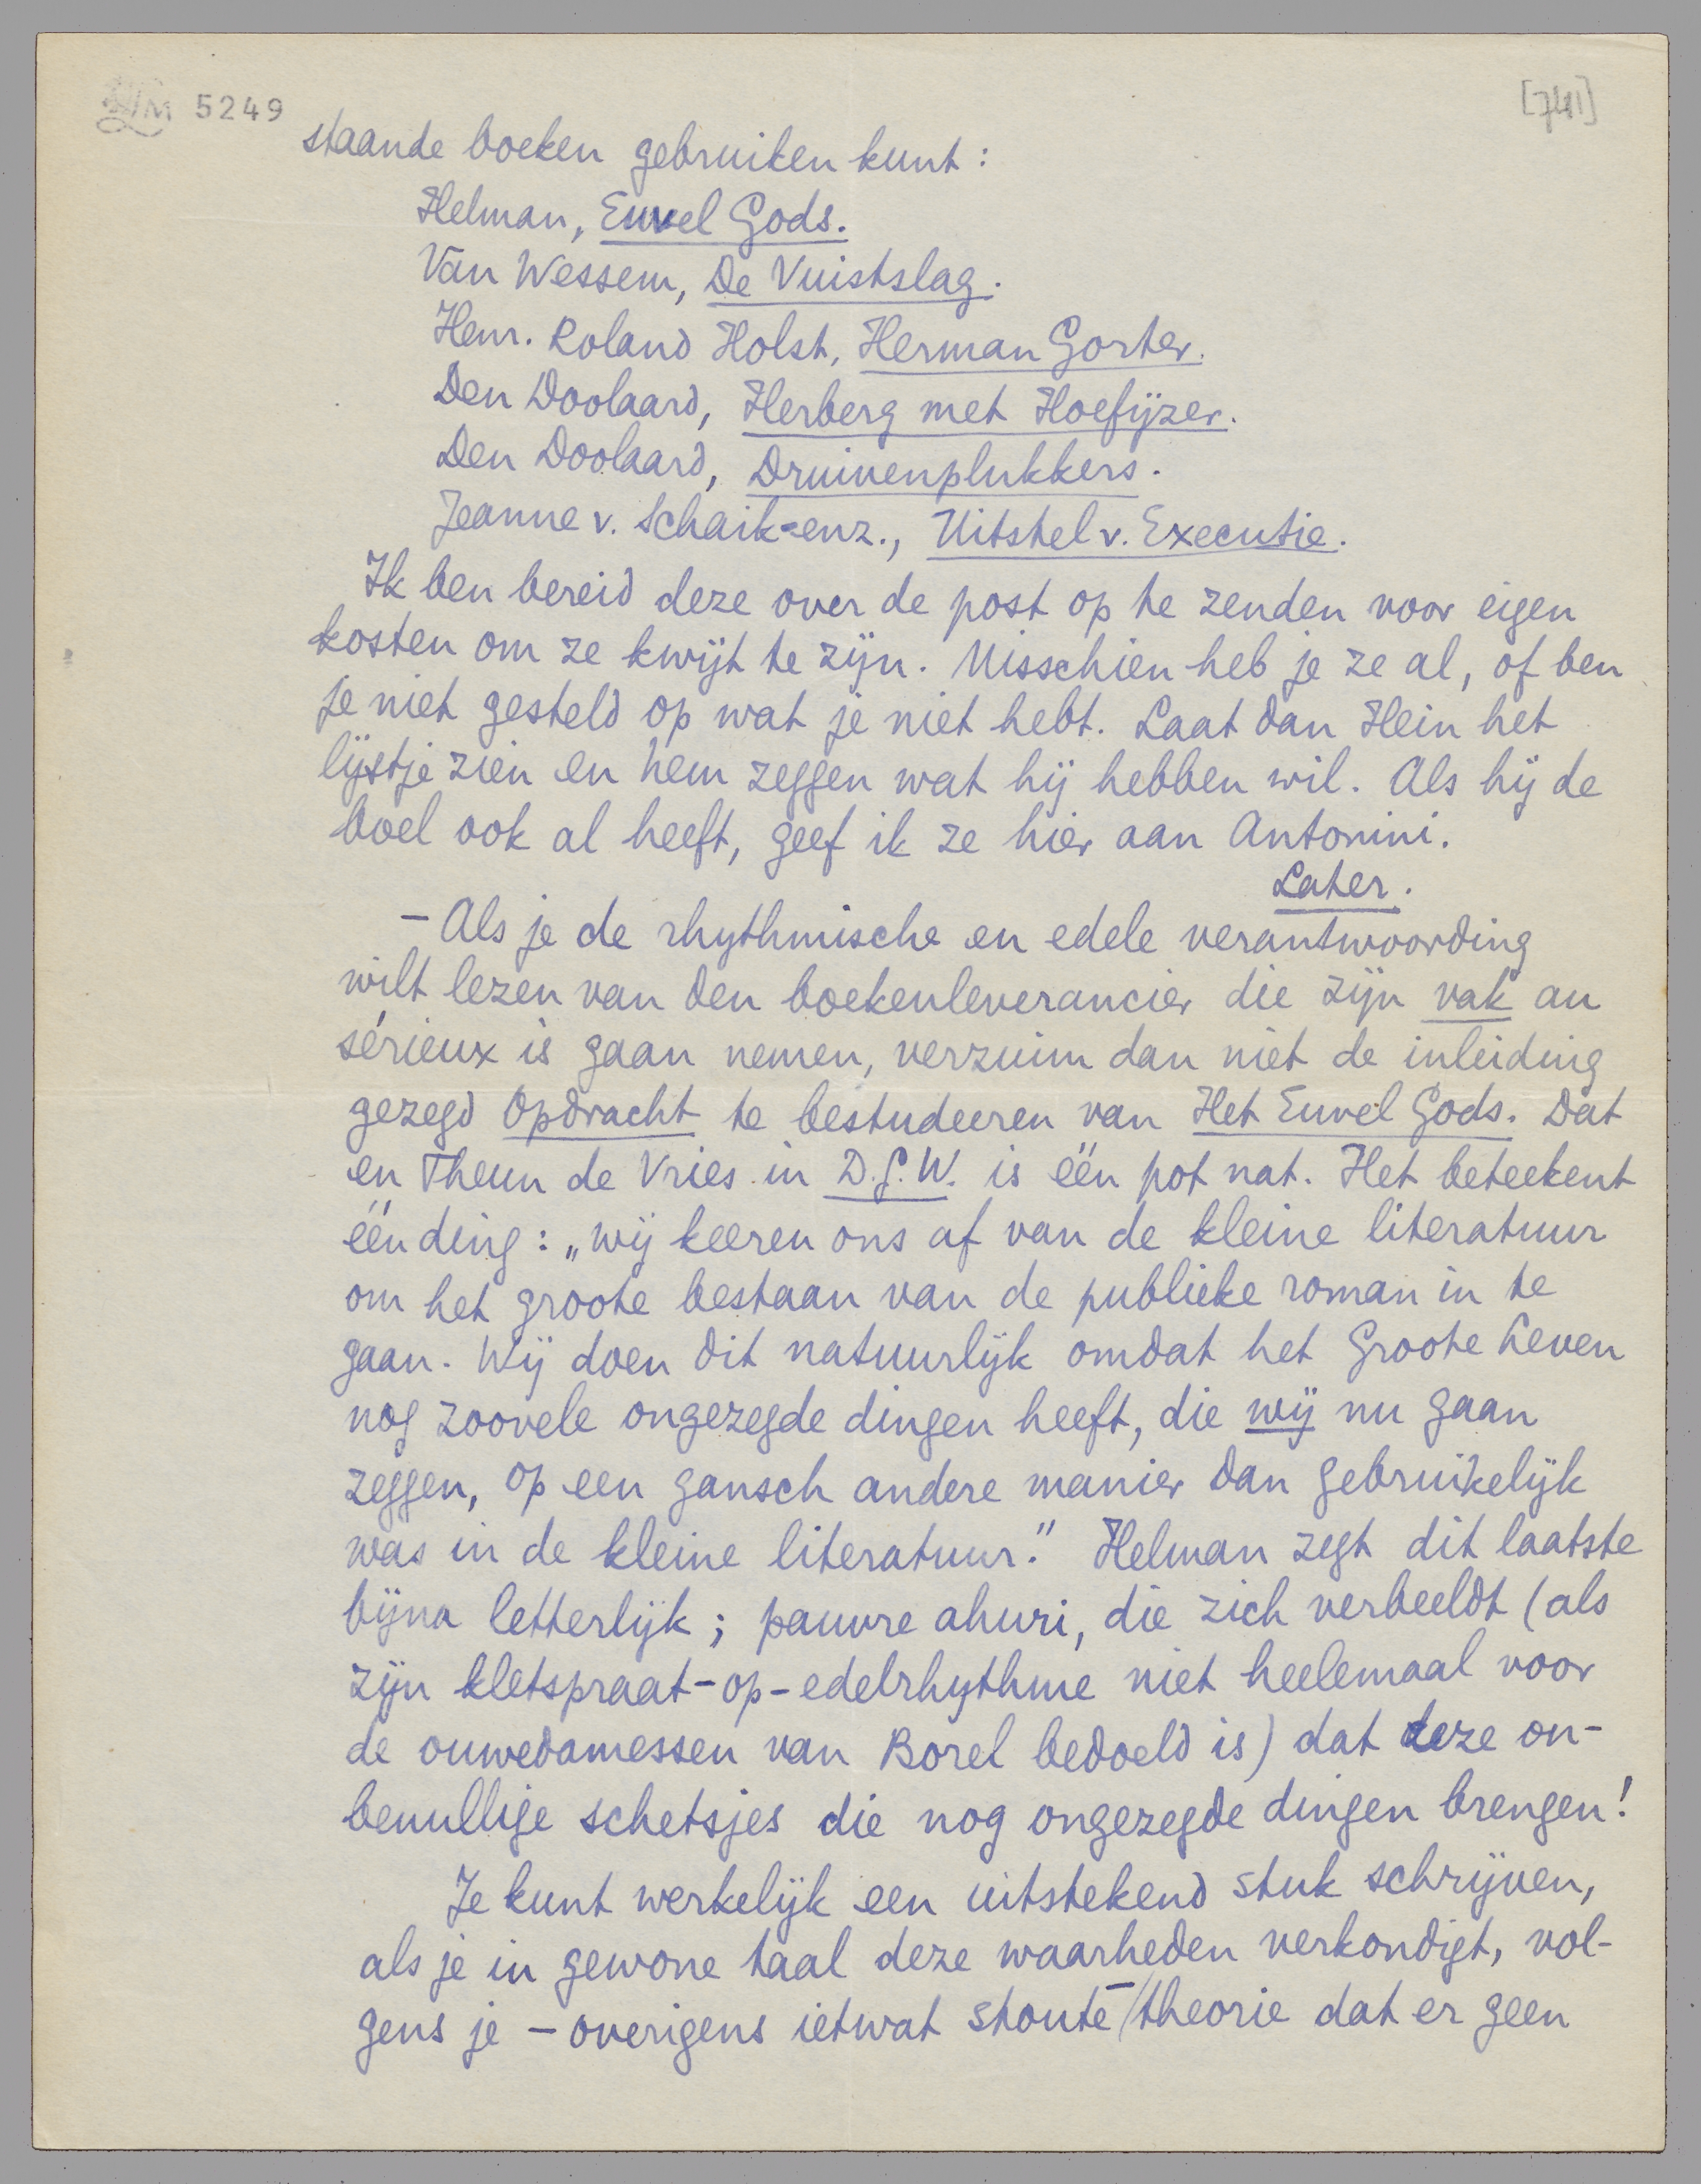 LM 5249
[741]
staande boeken gebruiken kunt:
Helman, Euvel Gods.
Van Wessem, De Vuistslag.
Henr. Roland Holst, Herman Gorter.
Den Doolaard, Herberg met Hoefijzer.
Den Doolaard, Druivenplukkers.
Jeanne v. Schaik-enz., Uitstel v. Executie.
Ik ben bereid deze over de post op te zenden voor eigen
kosten om ze kwijt te zijn. Misschien heb je ze al, of ben
je niet gesteld op wat je niet hebt. Laat dan Hein het
lijstje zien en hem zeggen wat hij hebben wil. Als hij de
boel ook al heeft, geef ik ze hier aan Antonini.
Later.
– Als je de rhythmische en edele verantwoording
wilt lezen van den boekenleverancier die zijn vak au
sérieux is gaan nemen, verzuim dan niet de inleiding
gezegd Opdracht te bestudeeren van Het Euvel Gods. Dat
en Theun de Vries in D.G.W. is één pot nat. Het beteekent
ééń ding: „wij keeren ons af van de kleine literatuur
om het groote bestaan van de publieke roman in te
gaan. Wij doen dit natuurlijk omdat het Groote Leven
nog zoovele ongezegde dingen heeft, die wij nu gaan
zeggen, op een gansch andere manier dan gebruikelijk
was in de kleine literatuur." Helman zegt dit laatste
bijna letterlijk; pauvre ahuri, die zich verbeeldt (als
zijn kletspraat-op-edelrhythme niet heelemaal voor
de ouwedamessen van Borel bedoeld is) dat deze on-
benullige schetsjes die nog ongezegde dingen brengen!
Je kunt werkelijk een uitstekend stuk schrijven,
als je in gewone taal deze waarheden verkondigt, vol-
gens je – overigens ietwat stoute –/theorie dat er geen